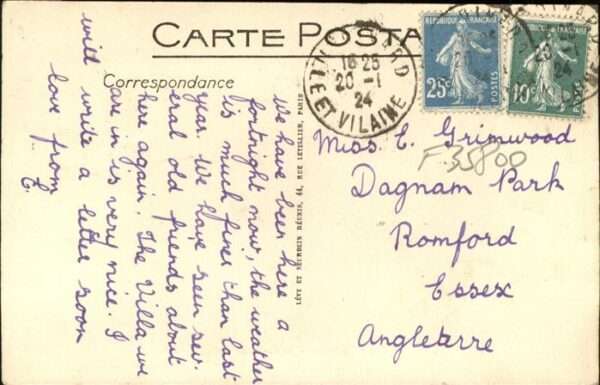 CARTE POSTA
Correspondance
We have been here a
fortnight now, the weather
is much finer than last
year. We have seen sev-
eral old friends about
here again. The Villa we
are in is very nice. I
will write a letter soon
love from
C.
LÉVY ET NEURDEIN RÉUNIS, 44, RUE LETELLIER, PARIS
16 25
20 - 1
24
ILLE ET VILAINE
RÉPUBLIQUE FRANÇAISE
25c
POSTES
10c
20 - 1
24
Miss C. Grimwood
F35800
Dagnam Park
Romford
Essex
Angleterre